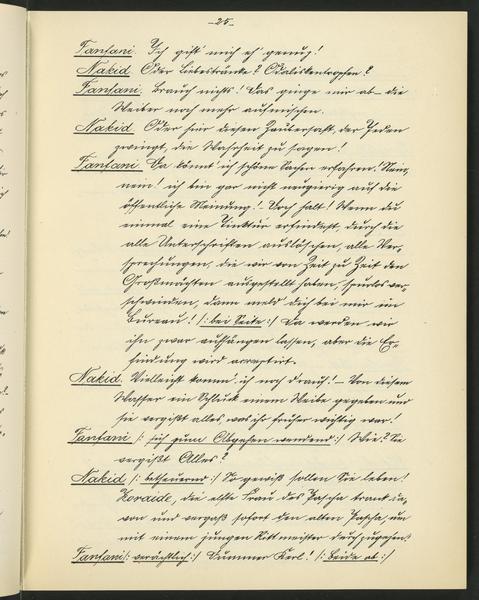 -25-
Tanfani. Ich gift' mich eh' genug!
Nakid. Oder Liebestränke? Odaliskentropfen?
Tanfani. Brauch nichts! Das ginge mir ab – die
Weiber noch mehr aufmischen.
Nakid. Oder hier diesen Zaubersaft, der Jeden
zwingt, die Wahrheit zu sagen!
Tanfani. Da könnt ich schöne Sachen erfahren! Nein,
nein! ich bin gar nicht neugierig auf die
öffentliche Meinung! Doch halt! Wenn du
einmal eine Tinktur erfindest, durch die
alle Unterschriften auslöschen, alle Ver-
sprechungen, die wir von Zeit zu Zeit den
Großmächten ausgestellt haben, spurlos ver-
schwinden, dann meld' dich bei mir im
Bureau! /: bei Seite :/ Da werden wir
ihn zwar aufhängen lassen, aber die Er-
findung wird acceptirt.
Nakid. Vielleicht komm' ich noch drauf! – Von diesem
Wasser ein Schluck einem Weibe gegeben und
sie vergißt alles was ihr früher wichtig war.
Tanfani /: sich zum Abgehen wendend :/ Wie? Sie
vergißt Alles?
Nakid /: betheuernd :/ So gewiß sollen Sie leben!
Zoraide, die alte Frau des Pascha trank da-
von und vergaß sofort den alten Pascha, um
mit einem jungen Rittmeister durchzugehen.
Tanfani /: verächtlich :/ Dummer Kerl! /: Beide ab :/